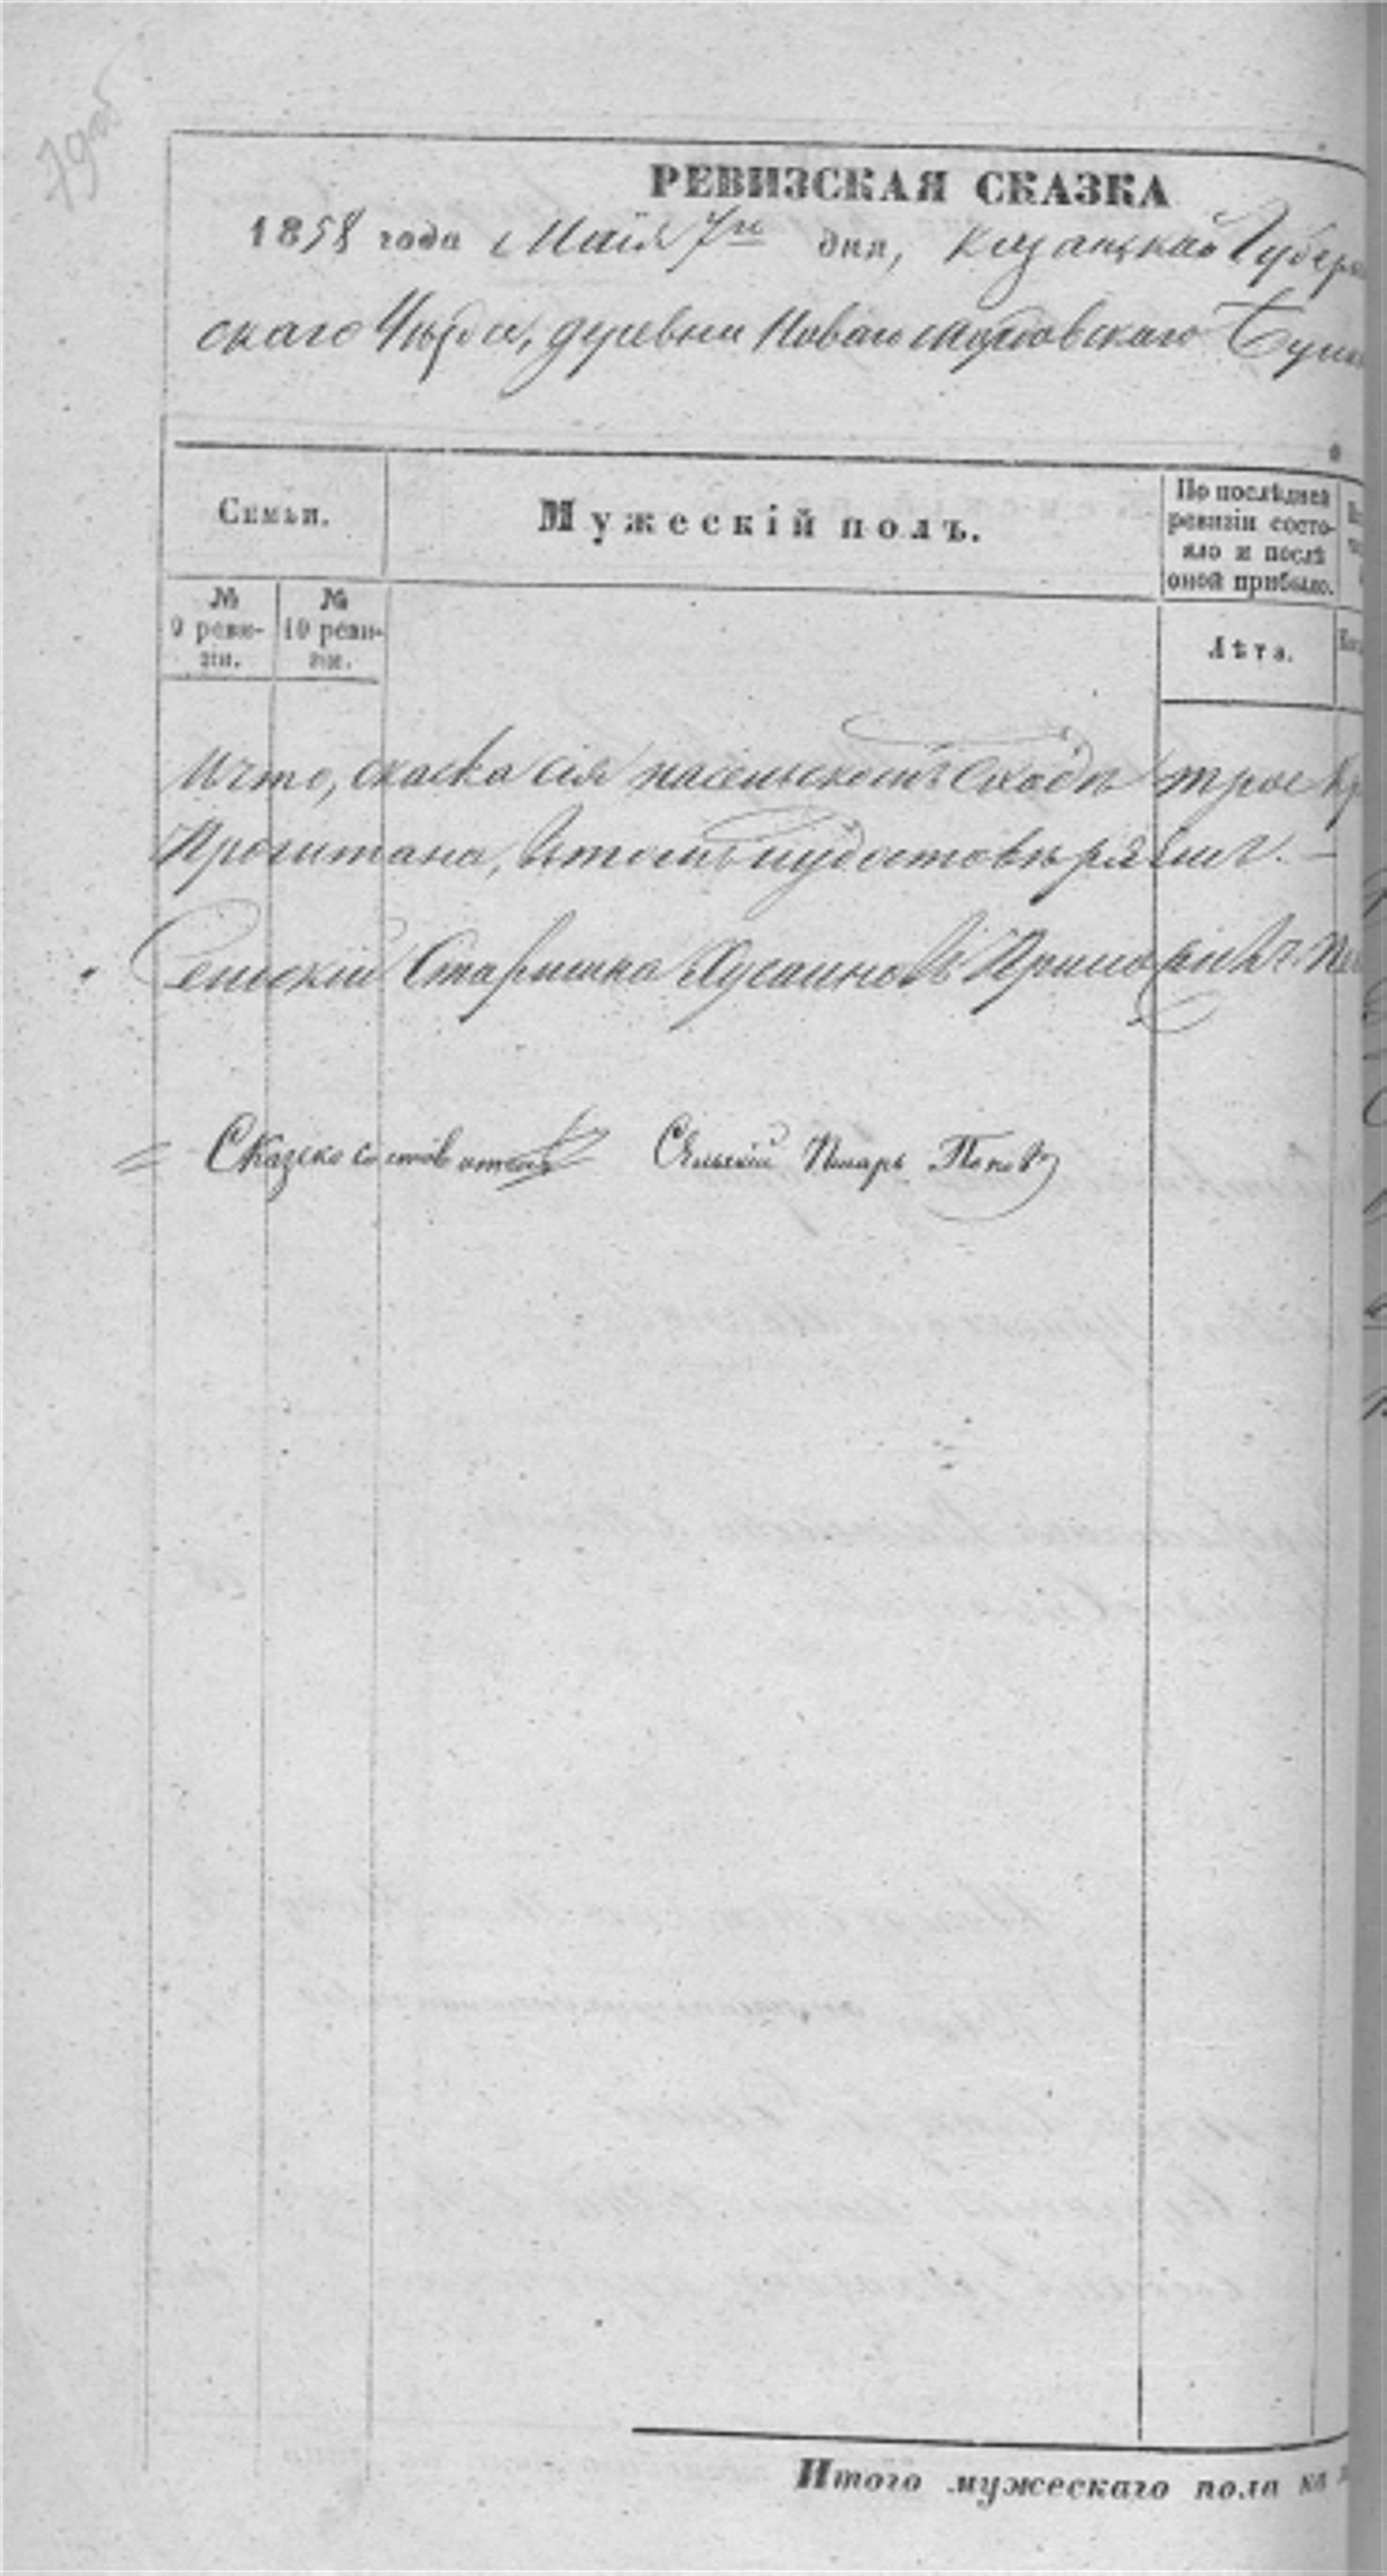 79об
РЕВИЗСКАЯ СКАЗКА
1858 года Маія 7го дня, Казанской Губерн
скаго Уѣзда, деревни Новаго
Семьи.
Мужескій полъ.
По послѣдней
ревизіи состо-
яло и послѣ
оной прибыло.
№
9 реви-
зіи.
№
10 реви-
зіи.
Лѣта.
Что, скаска сія насельскомъ Сходѣ трое
Прочитана, втомъ иудостовѣряемъ. —
Сельскій Старшина Хусаиновъ
Сказко составитель Сельскій Писарь Поповъ
Итого мужескаго пола на